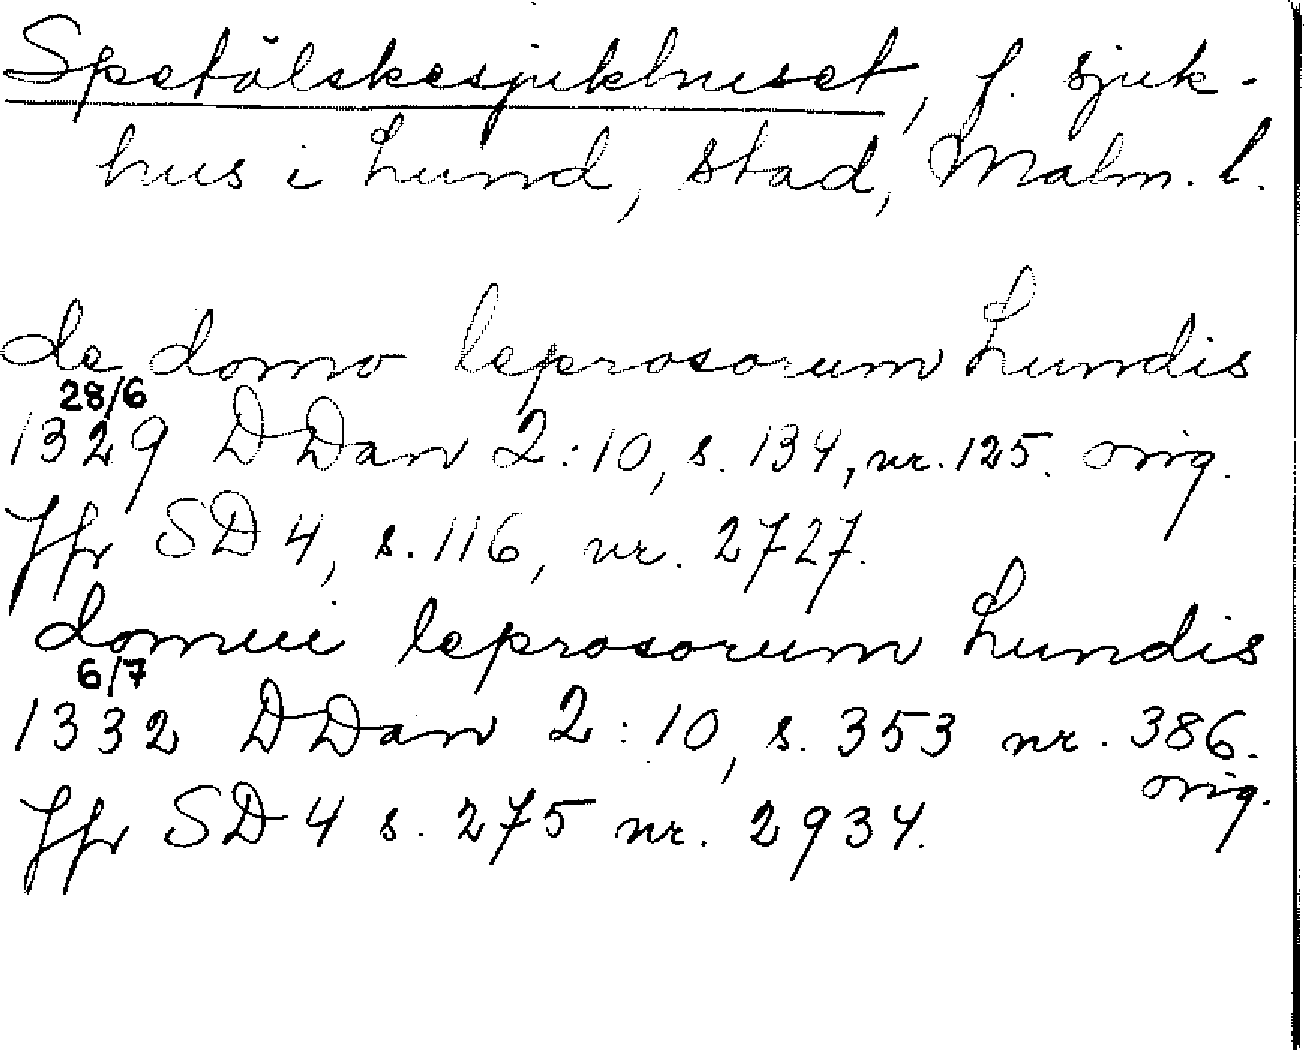 Spetälskesjukhuset, f. sjuk-
hus i Lund, stad, Malm. l.
de domo leprosorum Lundis
28/6
1329 DDan 2:10, s. 134, nr. 125. orig.
Jfr SD 4, s. 116, nr. 2727.
domui leprosorum Lundis
6/7
1332 DDan 2:10, s. 353 nr. 386.
orig.
Jfr SD 4 s. 275 nr. 2934.